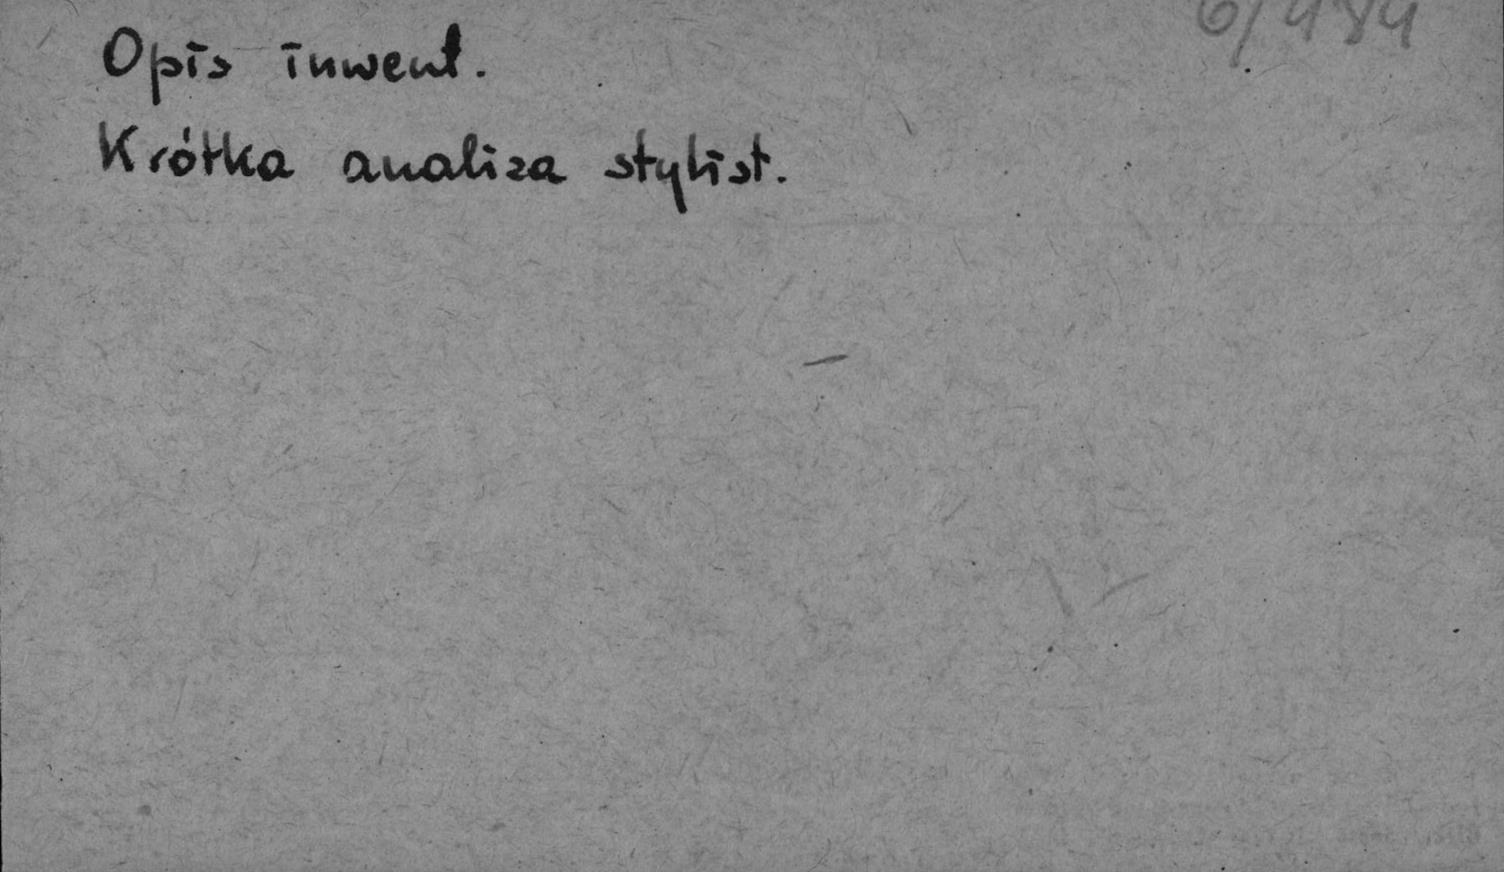 6/484
Opis inwent.
Krótka analiza stylist.